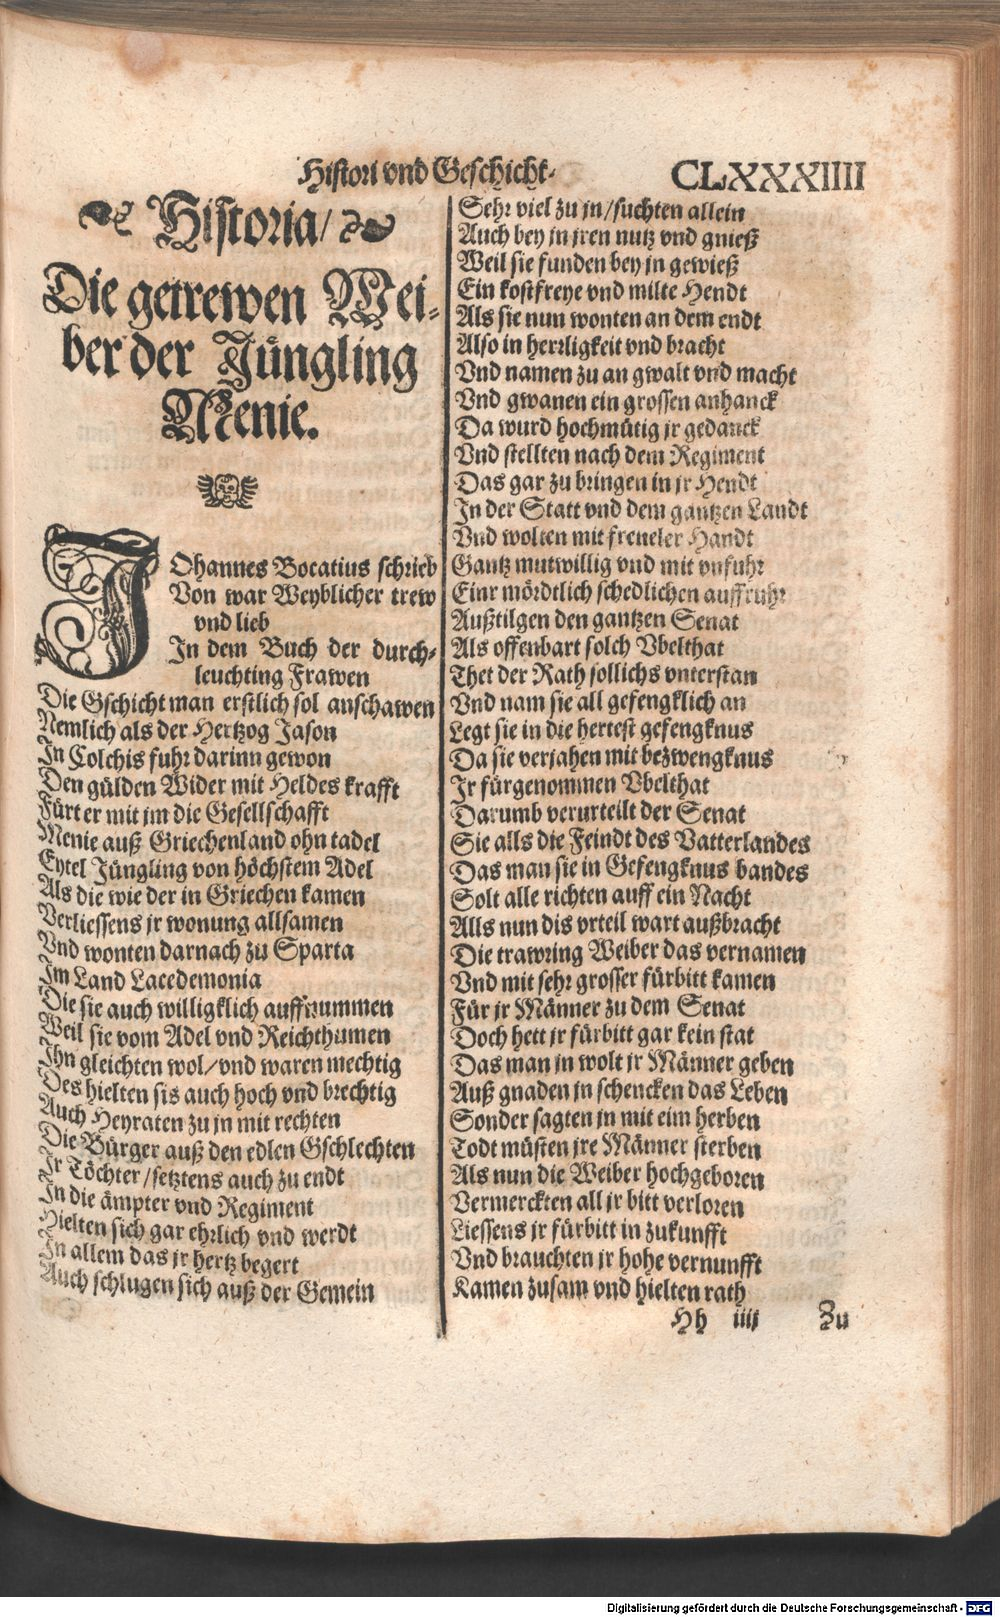 Histori vnd Geschicht-
CLXXXIIII
Historia/
Die getrewen Wei-
ber der Jüngling
Menie.
JOhannes Bocatius schrieb
Von war Weyblicher trew
vnd lieb
In dem Buch der durch-
leuchting Frawen
Die Gschicht man erstlich sol anschawen
Nemlich als der Hertzog Jason
In Colchis fuhr darinn gewon
Den gülden Wider mit Heldes krafft
Fürt er mit im die Gesellschafft
Menie auß Griechenland ohn tadel
Eytel Jüngling von höchstem Adel
Als die wie der in Griechen kamen
Verliessens jr wonung allsamen
Vnd wonten darnach zu Sparta
Im Land Lacedemonia
Die sie auch willigklich auffnummen
Weil sie vom Adel vnd Reichthumen
Ihn gleichten wol/vnd waren mechtig
Des hielten sis auch hoch vnd brechtig
Auch Heyraten zu jn mit rechten
Die Bürger auß den edlen Gschlechten
Jr Töchter/setztens auch zu endt
In die ämpter vnd Regiment
Hielten sich gar ehrlich vnd werdt
In allem das jr hertz begert
Auch schlugen sich auß der Gemein
Sehr viel zu jn/suchten allein
Auch bey jn jren nutz vnd gnieß
Weil sie funden bey jn gewieß
Ein kostfreye vnd milte Hendt
Als sie nun wonten an dem endt
Also in herrligkeit vnd bracht
Vnd namen zu an gwalt vnd macht
Vnd gwanen ein grossen anhanck
Da wurd hochmütig jr gedanck
Vnd stellten nach dem Regiment
Das gar zu bringen in jr Hendt
In der Statt vnd dem gantzen Landt
Vnd wolten mit freneler Handt
Gantz mutwillig vnd mit vnfuhr
Einr mördtlich schedlichen auffruhr
Außtilgen den gantzen Senat
Als offenbart solch Vbelthat
Thet der Rath sollichs vnterstan
Vnd nam sie all gefengklich an
Legt sie in die hertest gefengknus
Da sie verjahen mit bezwengknus
Jr fürgenommen Vbelthat
Darumb verurteilt der Senat
Sie alls die Feindt des Vatterlandes
Das man sie in Gefengknus bandes
Solt alle richten auff ein Nacht
Alls nun dis vrteil wart außbracht
Die trawring Weiber das vernamen
Vnd mit sehr grosser fürbitt kamen
Für jr Männer zu dem Senat
Doch hett jr fürbitt gar kein stat
Das man jn wolt jr Männer geben
Auß gnaden jn schencken das Leben
Sonder sagten jn mit eim herben
Todt müsten jre Männer sterben
Als nun die Weiber hochgeboren
Vermerckten all jr bitt verloren
Liessens jr fürbitt in zukunfft
Vnd brauchten jr hohe vernunfft
Kamen zusam vnd hielten rath
Hh iiij
Zu
Digitalisierung gefördert durch die Deutsche Forschungsgemeinschaft - DFG